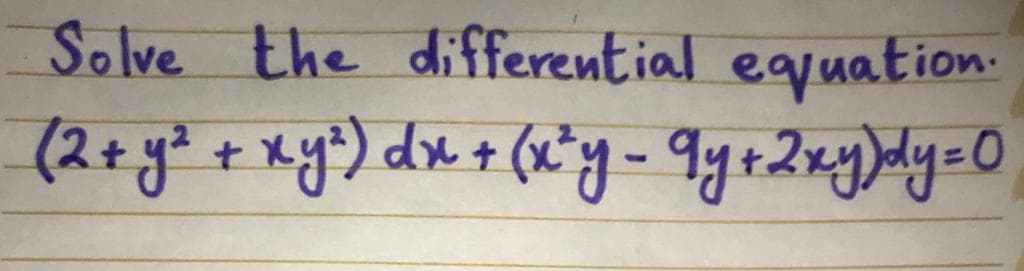 Solve the differential equation.
(2+y²+xy²)dx+(x²y-9y+2xy)dy=0